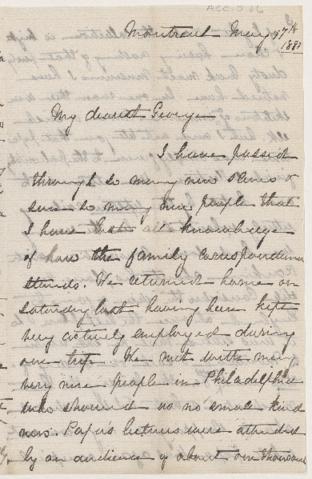 Montreal May 7th
1881
My dearest George
I have passed
through so many new scenes &
seen so many new people that
I have lost all knowledge
of how the family correspondence
stands. We returned home on
Saturday last having been kept
very actively employed during
our trip. We met with many
very nice people in Philadelphia
who showed us no small kind
ness Papa's lectures were attended
by an audience of about one thousand